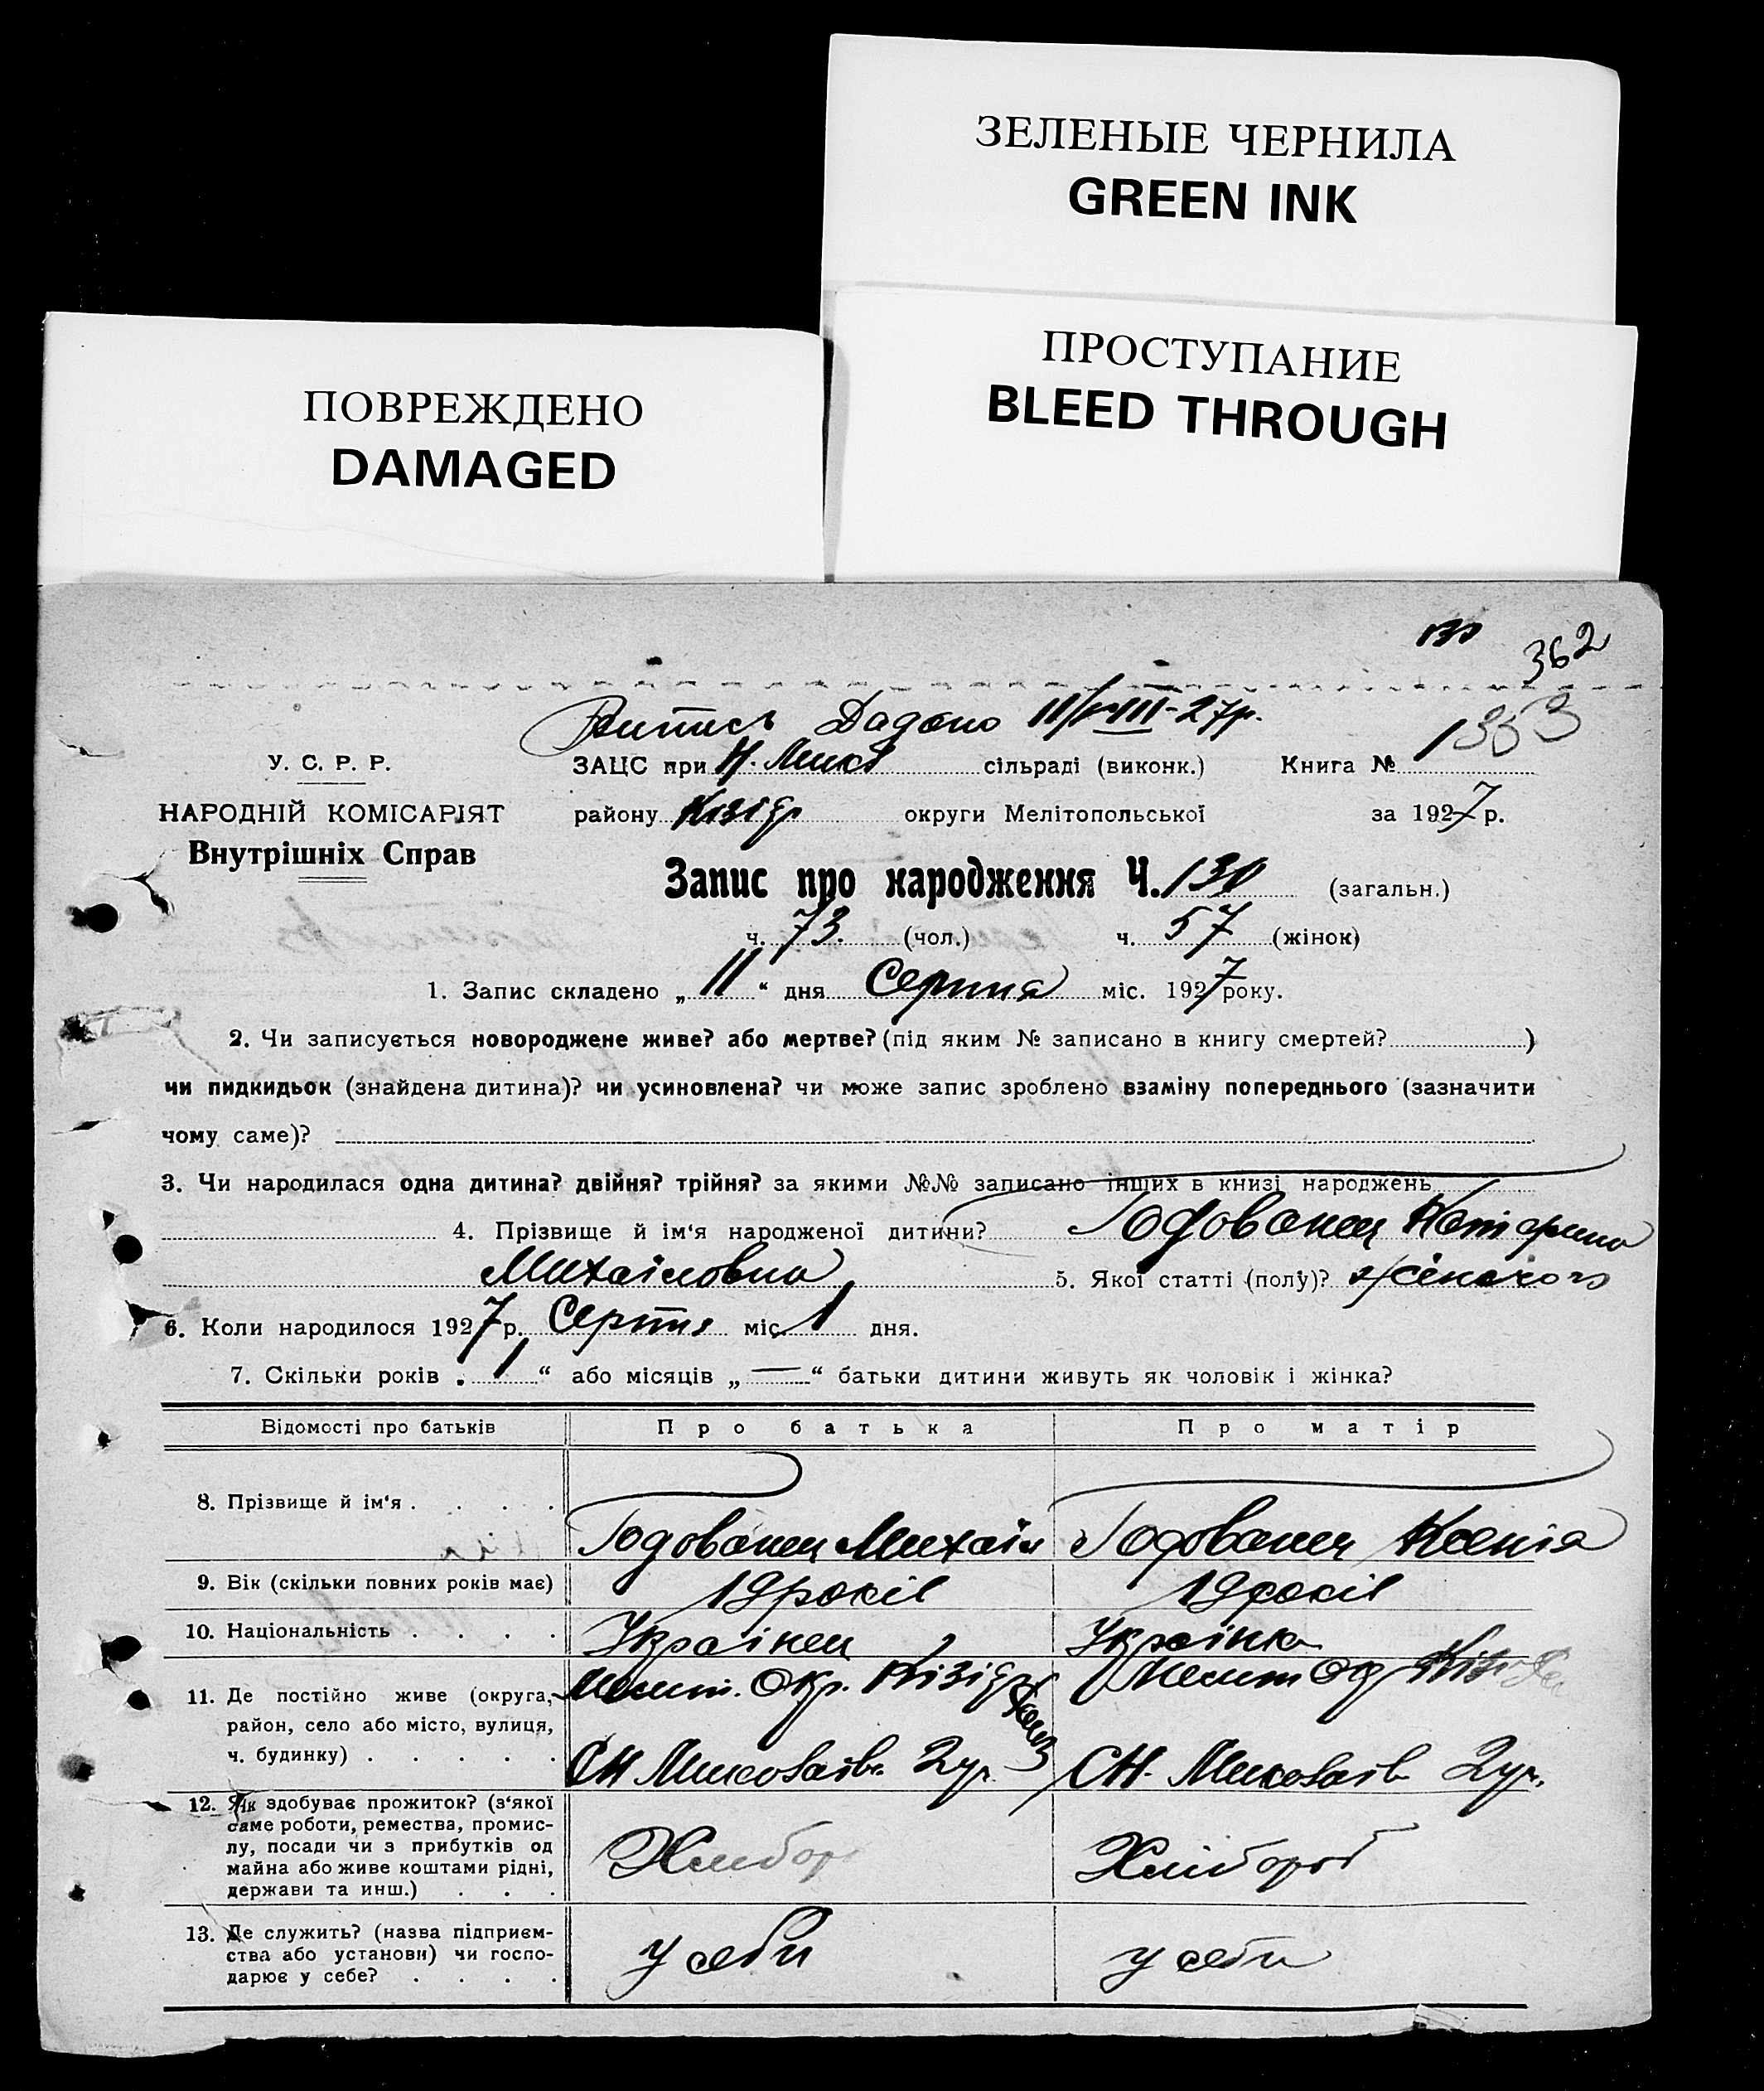 ЗЕЛЕНЫЕ ЧЕРНИЛА
GREEN INK
ПРОСТУПАНИЕ
BLEED THROUGH
ПОВРЕЖДЕНО
DAMAGED
130
362
Витись Дадано 11/VIII-27р.
У. С. Р. Р.
ЗАЦС при Н. Микол сільраді (виконк.) Книга № 1353
НАРОДНІЙ КОМІСАРІЯТ
району Кізідр округи Мелітопольської за 1927 р.
Внутрішніх Справ
Запис про народження Ч. 130 (загальн.)
ч. 73. (чол.) ч. 57 (жінок)
1. Запис складено „ 11 “ дня Серпня міс. 1927 року.
2. Чи записується новороджене живе? або мертве? (під яким № записано в книгу смертей? )
чи пидкидьок (знайдена дитина)? чи усиновлена? чи може запис зроблено взаміну попереднього (зазначити
чому саме)?
3. Чи народилася одна дитина? двійня? трійня? за якими №№ записано інших в книзі народжень
4. Прізвище й ім‘я народженої дитини? Годованец Катерина
Михаіловна 5. Якої статті (полу)? жіночого
6. Коли народилося 1927 р. Серпня міс. 1 дня.
7. Скільки років „ 1 “ або місяців „ — “ батьки дитини живуть як чоловік і жінка?
Відомості про батьків Про батька Про матір
8. Прізвище й ім‘я . . . . Годованец Михаїл Годованец Ксенія
9. Вік (скільки повних років має) 19 років 19 років
10. Національність . . . . Українец Українка
11. Де постійно живе (округа, район, село або місто, вулиця, ч. будинку) . . . . .
Мелит. Окр. Кізідр
СН Миколаївк 2 ул.
Мелит Од
СН. Миколаівк 2 ул.
12. Як здобуває прожиток? (з‘якої саме роботи, ремества, промислу, посади чи з прибутків од майна або живе коштами рідні, держави та инш.) . . .
Хлибор
Хлібороб
13. Де служить? (назва підприємства або установи) чи господарює у себе? . . . .
у себи
у себи